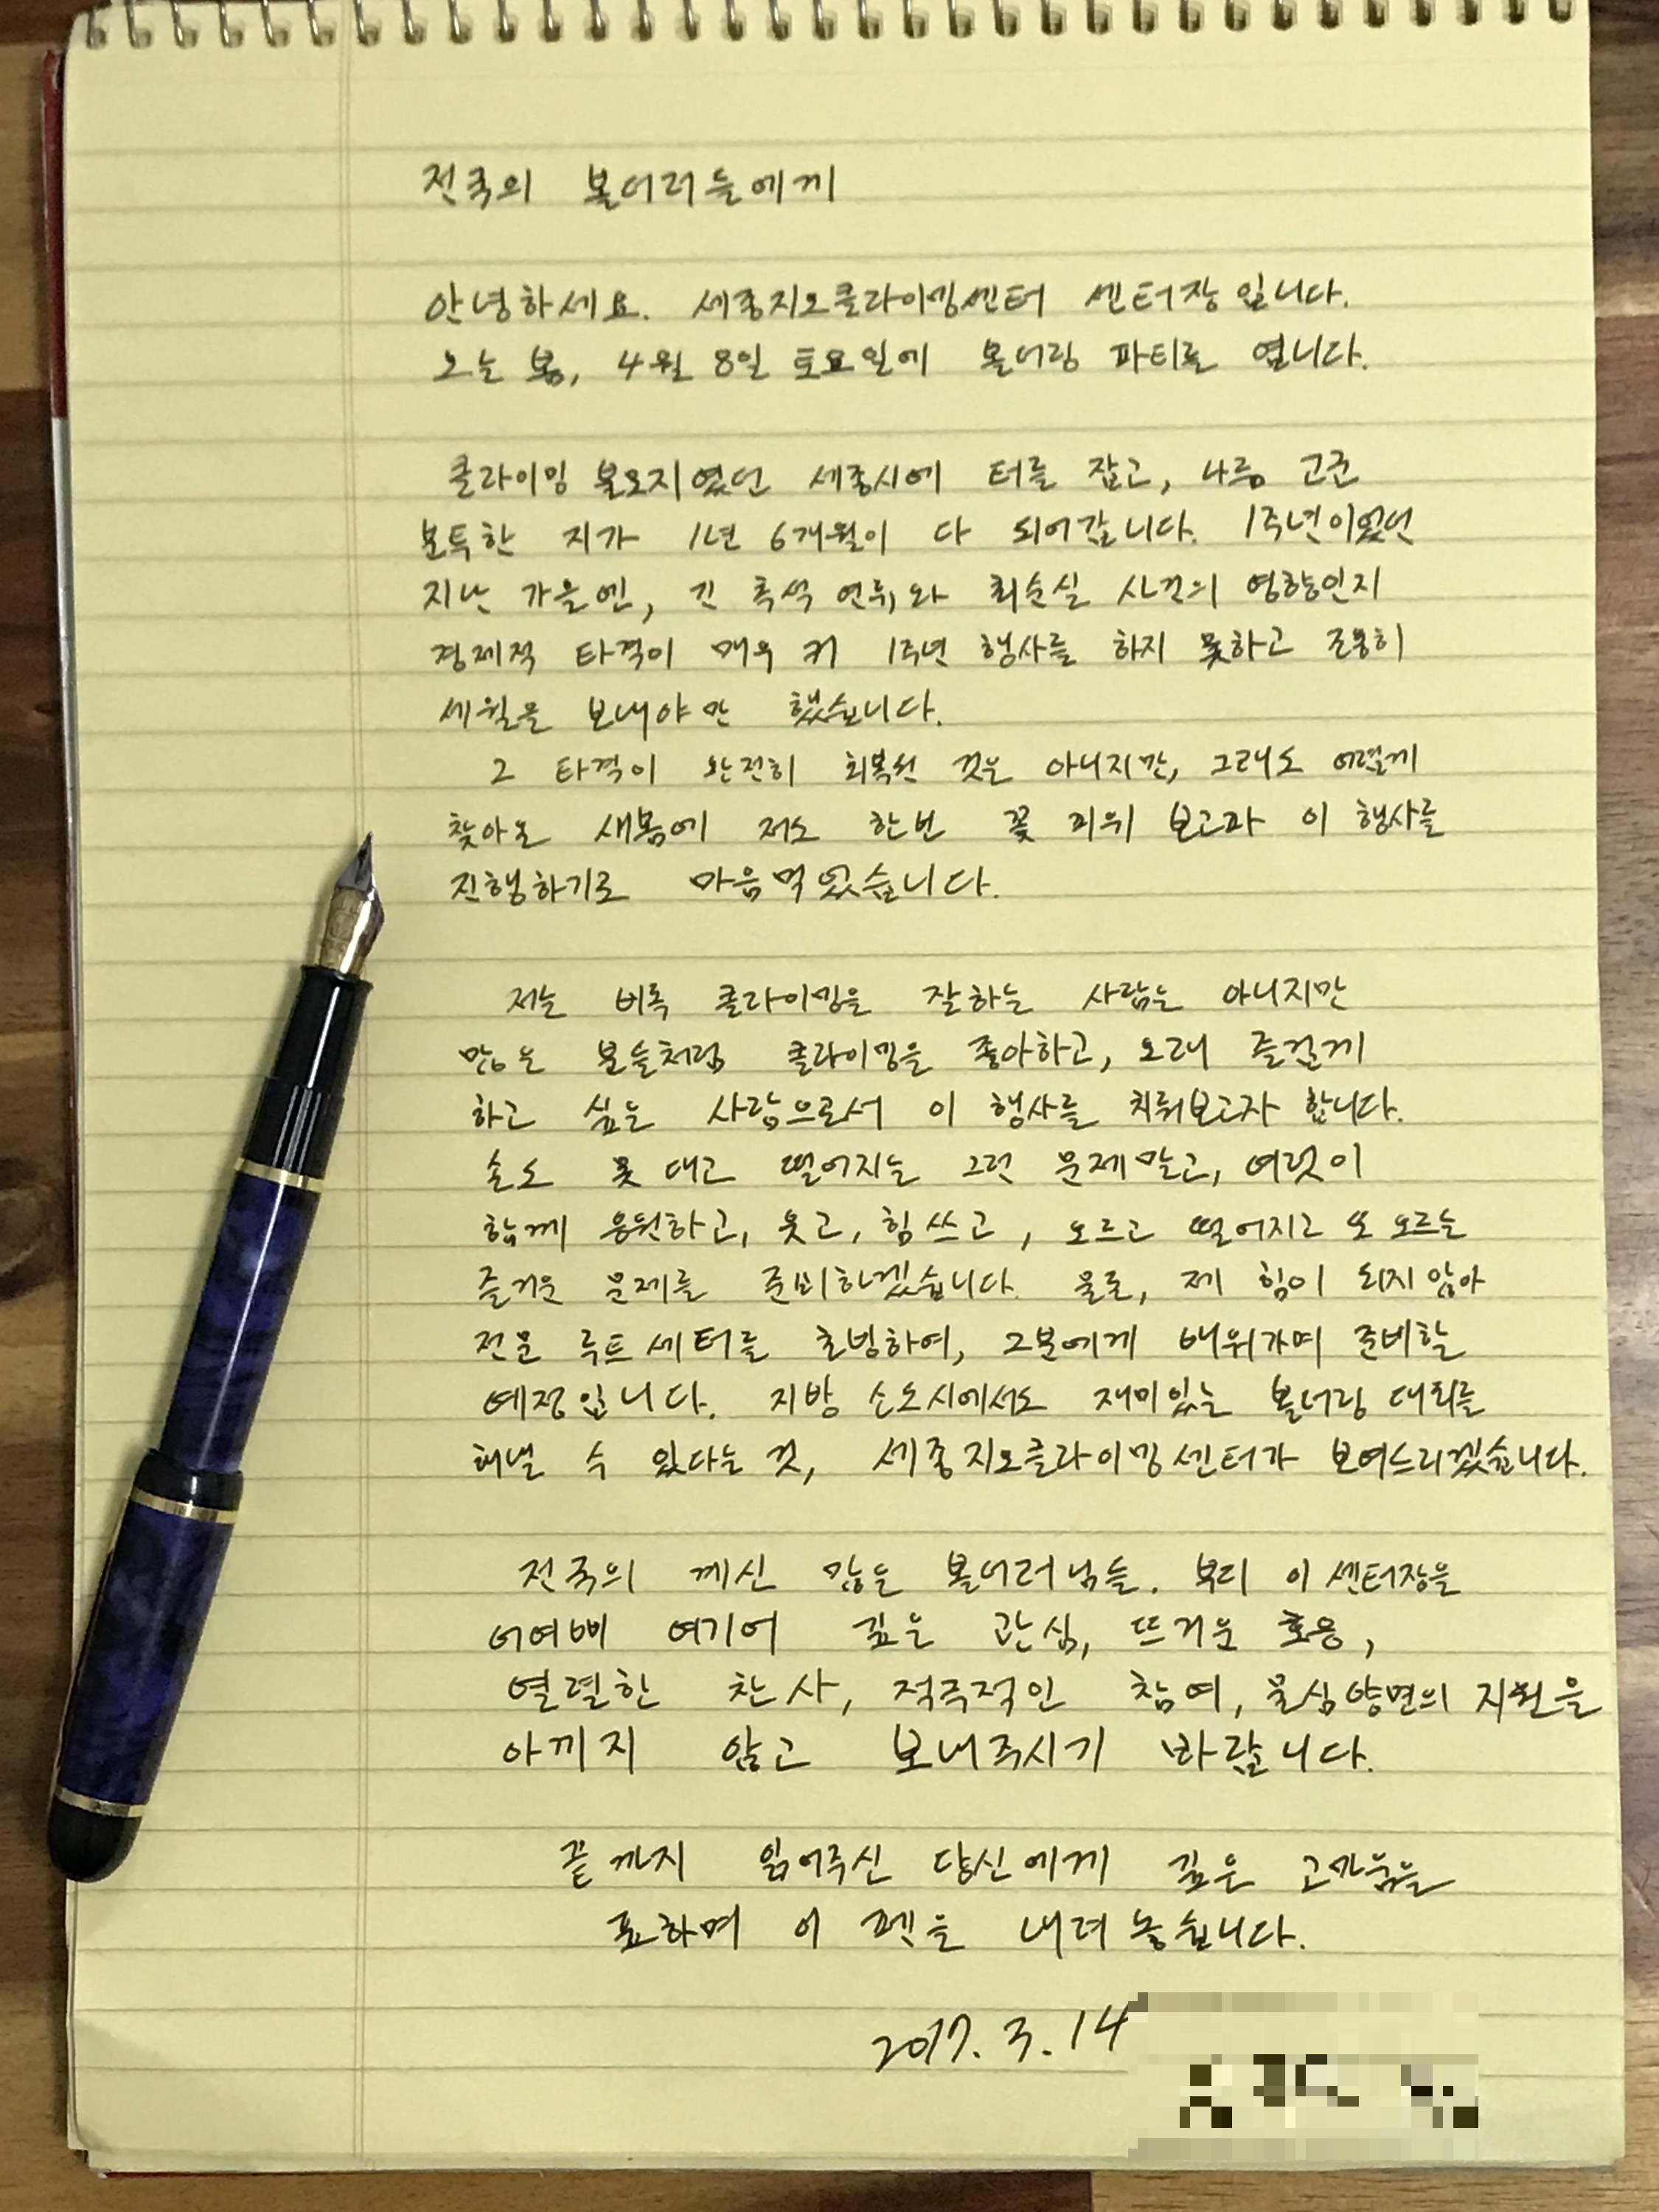 전국의 볼더러들에게
안녕하세요. 세종지오클라이밍센터 센터장입니다.
오는 봄, 4월 8일 토요일에 볼더링 파티를 엽니다.
클라이밍 불모지였던 세종시에 터를 잡고, 나름 고군
분투한 지가 1년 6개월이 다 되어갑니다. 1주년이었던
지난 가을엔, 긴 추석 연휴와 최순실 사건의 영향인지
경제적 타격이 매우 커 1주년 행사를 하지 못하고 조용히
세월을 보내야만 했습니다.
그 타격이 완전히 회복된 것은 아니지만, 그래도 어렵게
찾아온 새봄에 저도 한번 꽃 피워 보고파 이 행사를
진행하기로 마음먹었습니다.
저는 비록 클라이밍을 잘하는 사람은 아니지만
많은 분들처럼 클라이밍을 좋아하고, 오래 즐겁게
하고 싶은 사람으로서 이 행사를 치뤄보고자 합니다.
손도 못 대고 떨어지는 그런 문제말고, 여럿이
함께 응원하고, 웃고, 힘쓰고, 오르고 떨어지고 또 오르는
즐거운 문제를 준비하겠습니다. 물론, 제 힘이 되지 않아
전문 루트세터를 초빙하여, 그분에게 배워가며 준비할
예정입니다. 지방 소도시에서도 재미있는 볼더링 대회를
해낼 수 있다는 것, 세종지오클라이밍센터가 보여드리겠습니다.
전국의 계신 많은 볼더러님들. 부디 이 센터장을
어여삐 여기어 깊은 관심, 뜨거운 호응,
열렬한 찬사, 적극적인 참여, 물심양면의 지원을
아끼지 않고 보내주시기 바랍니다.
끝까지 읽어주신 당신에게 깊은 고마움을
표하며 이 펜을 내려놓습니다.
2017. 3. 14